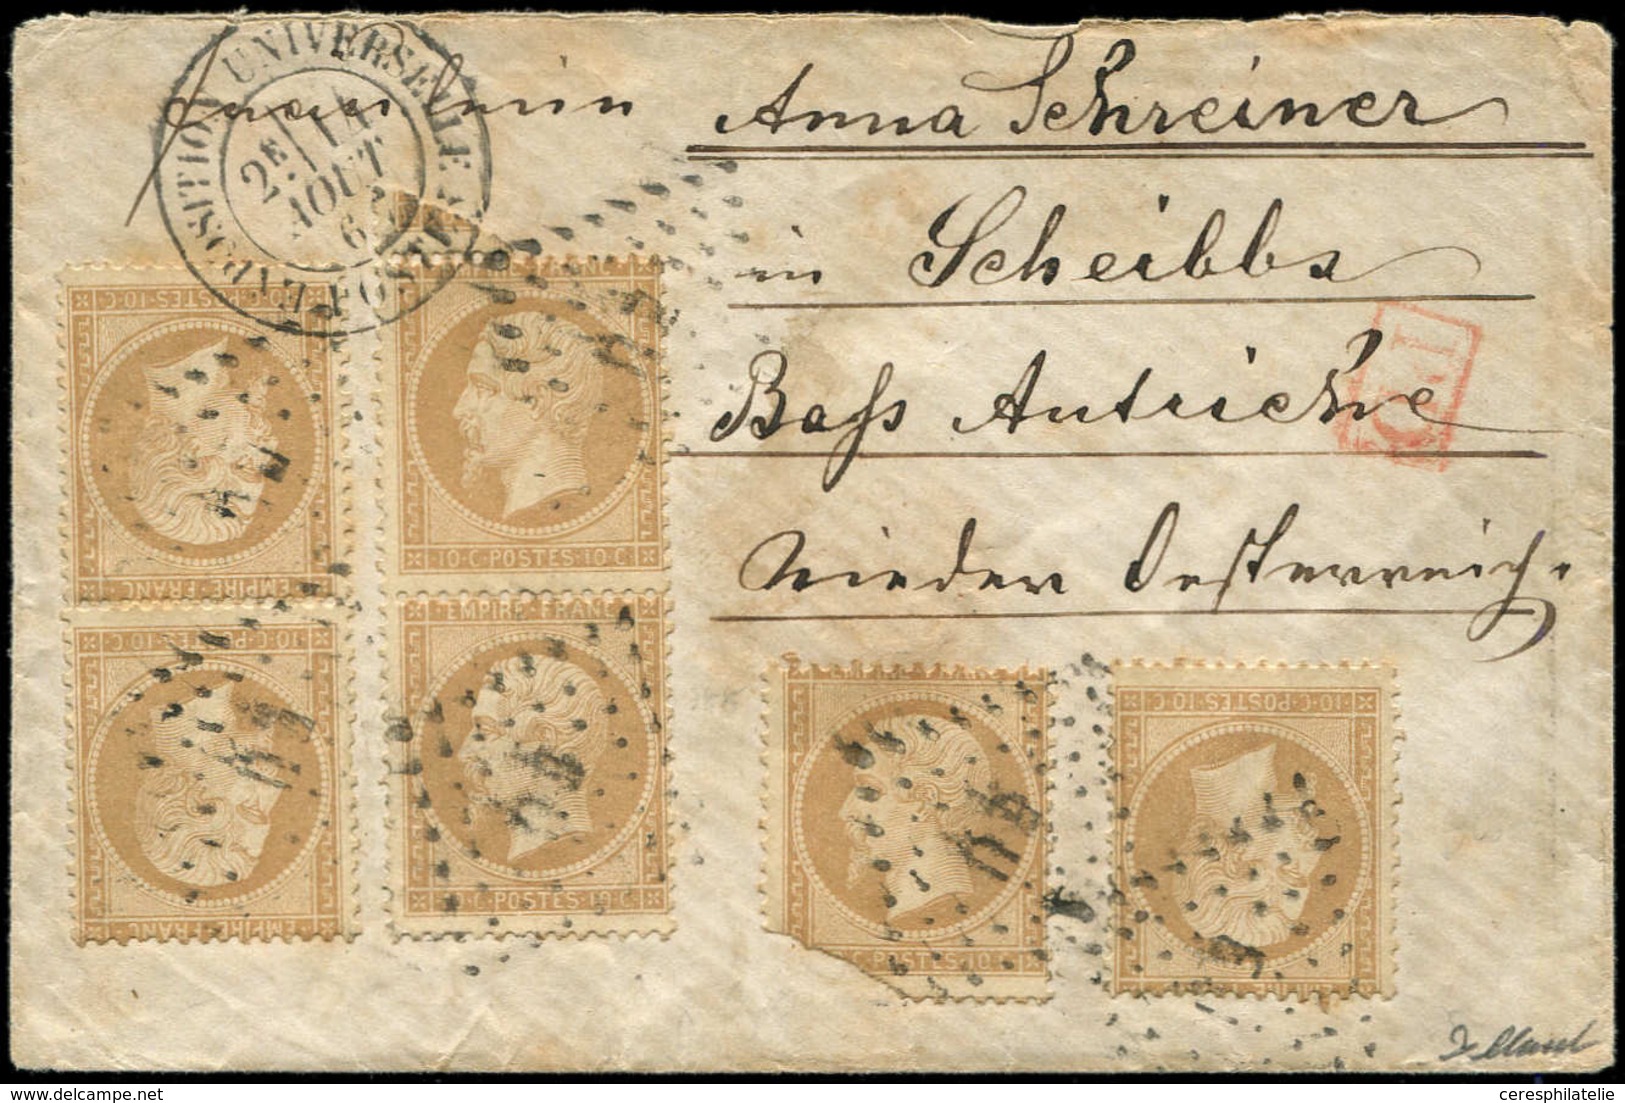 EXPOSITION UNIVERSELLE POSTES
2E 14
AOUT
67
Anna Schreiner
in Scheibbs
Bass Autriche
Nieder Oesterreich.
P.D.
EMPIRE FRANC
10·C·POSTES·10·C
10·C·POSTES·10·C
EMPIRE·FRANC
EMPIRE·FRANC
10·C·POSTES·10·C
10·C·POSTES·10·C
EMPIRE FRANC
EMPIRE FRANC
C·POSTES·10·C
10·C·POSTES·10·C
ceresphilatelie